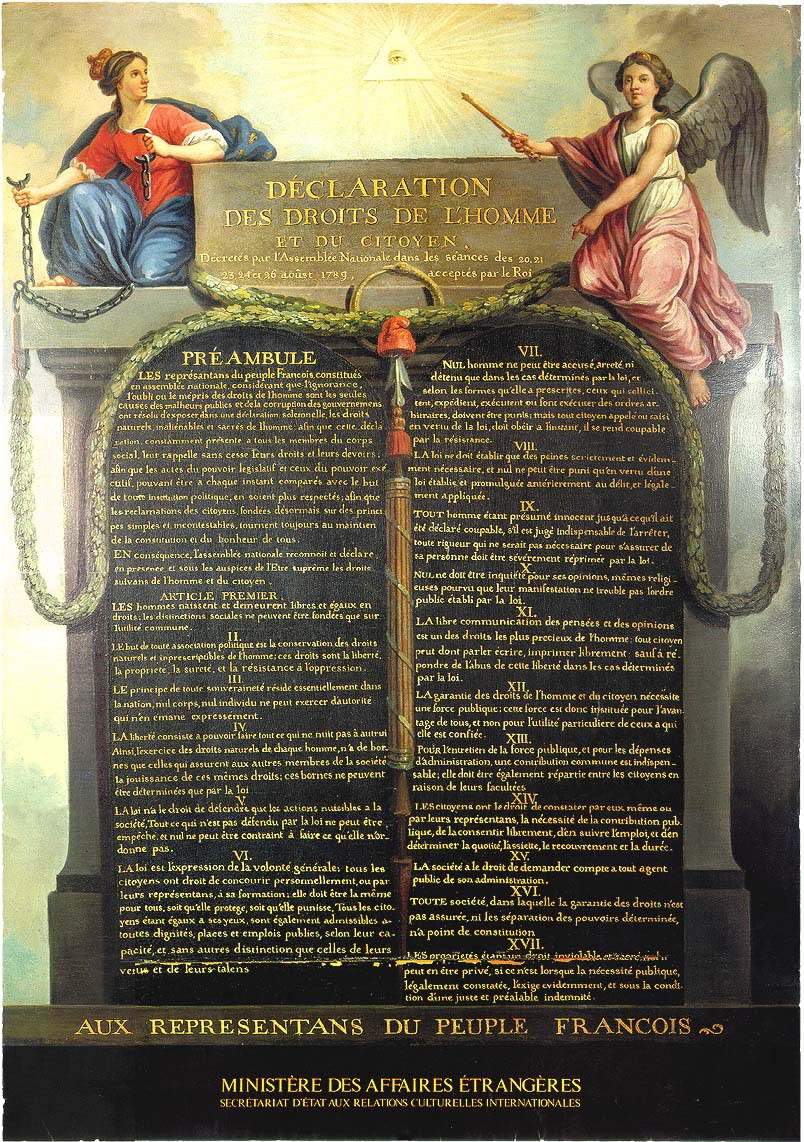 DÉCLARATION
DES DROITS DE L'HOMME
ET DU CITOYEN,
Décretés par l'Assemblée Nationale dans les séances des 20.21
23.24 et 26 aoûst 1789, acceptés par le Roi
PRÉAMBULE
LES représantans du peuple Francois, constitués
en assemblée nationale, considérant que l'ignorance,
l'oubli ou le mépris des droits de l'homme sont les seules
causes des malheurs publics et de la corruption des gouvernemens
ont résolu d'exposer dans une déclaration solemnelle, les droits
naturels, inaliénables et sacrés de l'homme; afin que cette décla
ration, constamment présente a tous les membres du corps
social, leur rappelle sans cesse leurs droits et leurs devoirs;
afin que les actes du pouvoir législatif et ceux du pouvoir exé
cutif, pouvant être a chaque instant comparés avec le but
de toute institution politique, en soient plus respectés; afin que
les reclamations des citoyens, fondées désormais sur des princi
pes simples et incontestables, tournent toujours au maintien
de la constitution et du bonheur de tous.
EN conséquence, l'assemblée nationale reconnoit et déclare,
en presence et sous les auspices de l'Etre suprême les droits
suivans de l'homme et du citoyen.
ARTICLE PREMIER.
LES hommes naissent et demeurent libres et égaux en
droits; les distinctions sociales ne peuvent être fondées que sur
l'utilité commune.
II.
LE but de toute association politique est la conservation des droits
naturels et inprescriptibles de l'homme; ces droits sont la liberté,
la propriété, la sureté, et la résistance à l'oppression.
III.
LE principe de toute souveraineté réside essentiellement dans
la nation, nul corps, nul individu ne peut exercer d'autorité
qui n'en émane expressement.
IV.
LA liberté consiste a pouvoir faire tout ce qui ne nuit pas à autrui
Ainsi, l'exercice des droits naturels de chaque homme, n'a de bor-
nes que celles qui assurent aux autres membres de la société
la jouissance de ces mêmes droits; ces bornes ne peuvent
être déterminées que par la loi
V.
LA loi n'a le droit de défendre que les actions nuisibles a la
société. Tout ce qui n'est pas défendu par la loi ne peut être
empêché, et nul ne peut être contraint à faire ce qu'elle n'or-
donne pas.
VI.
LA loi est l'expression de la volonté générale; tous les
citoyens ont droit de concourir personnellement, ou par
leurs représentans, à sa formation; elle doit être la même
pour tous, soit qu'elle protege, soit qu'elle punisse, Tous les cito
yens étant égaux a ses yeux, sont également admissibles a
toutes dignités, places et emplois publics, selon leur ca-
pacité, et sans autres distinction que celles de leurs
vertus et de leurs talens
VII.
NUL homme ne peut être accusé, arreté, ni
détenu que dans les cas déterminés par la loi, et
selon les formes qu'elle a prescrites, ceux qui sollici-
tent, expédient, exécutent ou font exécuter des ordres ar-
bitraires, doivent être punis; mais tout citoyen appelé ou saisi
en vertu de la loi, doit obéir a l'instant, il se rend coupable
par la résistance.
VIII.
LA loi ne doit établir que des peines strictement et évidem-
ment nécessaire, et nul ne peut être puni qu'en vertu d'une
loi établie et promulguée antérierement au délit, et légale-
ment appliquée.
IX.
TOUT homme étant présumé innocent jusqu'a ce qu'il ait
été déclaré coupable, s'il est jugé indispensable de l'arrêter,
toute rigueur qui ne serait pas nécessaire pour s'assurer de
sa personne doit être sévèrement réprimée par la loi.
X.
NUL ne doit être inquiété pour ses opinions, mêmes religi-
euses pourvu que leur manifestation ne trouble pas l'ordre
public établi par la loi.
XI.
LA libre communication des pensées et des opinions
est un des droits les plus precieux de l'homme; tout citoyen
peut dont parler écrire, imprimer librement; sauf a ré-
pondre de l'abus de cette liberté dans les cas déterminés
par la loi.
XII.
LA garantie des droits de l'homme et du citoyen nécessite
une force publique; cette force est donc instituée pour l'avan-
tage de tous, et non pour l'utilité particuliere de ceux a qui
elle est confiée.
XIII.
Pour l'entretien de la force publique, et pour les dépenses
d'administration, une contribution commune est indispen-
sable; elle doit être également répartie entre les citoyens en
raison de leurs facultées
XIV.
LES citoyens ont le droit de constater par eux même ou
par leurs représentans, la nécessité de la contribution pub-
lique, de la consentir librement, d'en suivre l'emploi, et d'en
déterminer la quotité, l'assiette, le recouvrement et la durée.
XV.
LA société a le droit de demander compte a tout agent
public de son administration.
XVI.
TOUTE société, dans laquelle la garantie des droits n'est
pas assurée, ni les séparation des pouvoirs déterminée,
n'a point de constitution
XVII.
LES proprietés étant un droit inviolable et sacré, nul n
peut en être privé, si ce n'est lorsque la nécessité publique,
légalement constatée, l'exige evidemment, et sous la condi-
tion d'une juste et préalable indemnité.
AUX REPRESENTANS DU PEUPLE FRANCOIS
MINISTÈRE DES AFFAIRES ÉTRANGÈRES
SECRÉTARIAT D'ÉTAT AUX RELATIONS CULTURELLES INTERNATIONALES